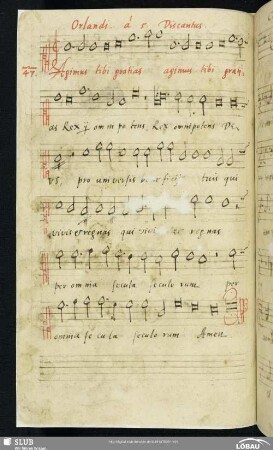 Orlandi. á 5. Discantus.
47. Agimus tibi gratias agimus tibi grati
as Rex omnipotens, Rex omnipotens De
us, pro universis tuis qui
vivis et regnas qui vivis et regnas
per omnia secula seculorum per
omnia secula seculorum Amen
SLUB
LÖBAU